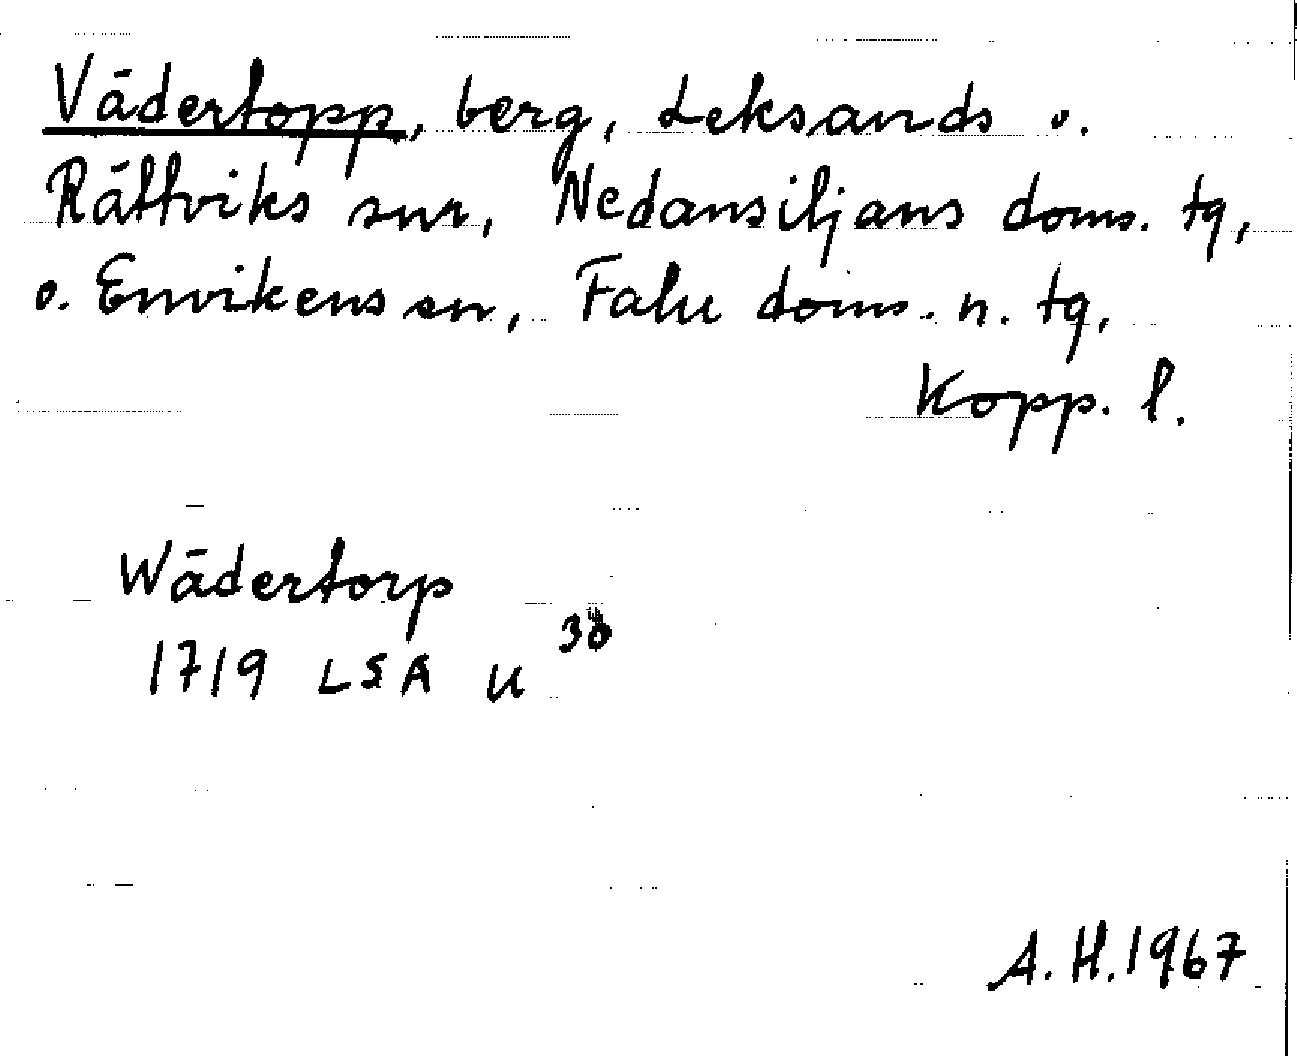 Vädertopp, berg, Leksands o.
Rättviks snr, Nedansiljans doms. tg,
o. Envikens sn, Falu doms. n. tg,
Kopp. l.
Wädertorp
1719 LSA U 30
A. H. 1967